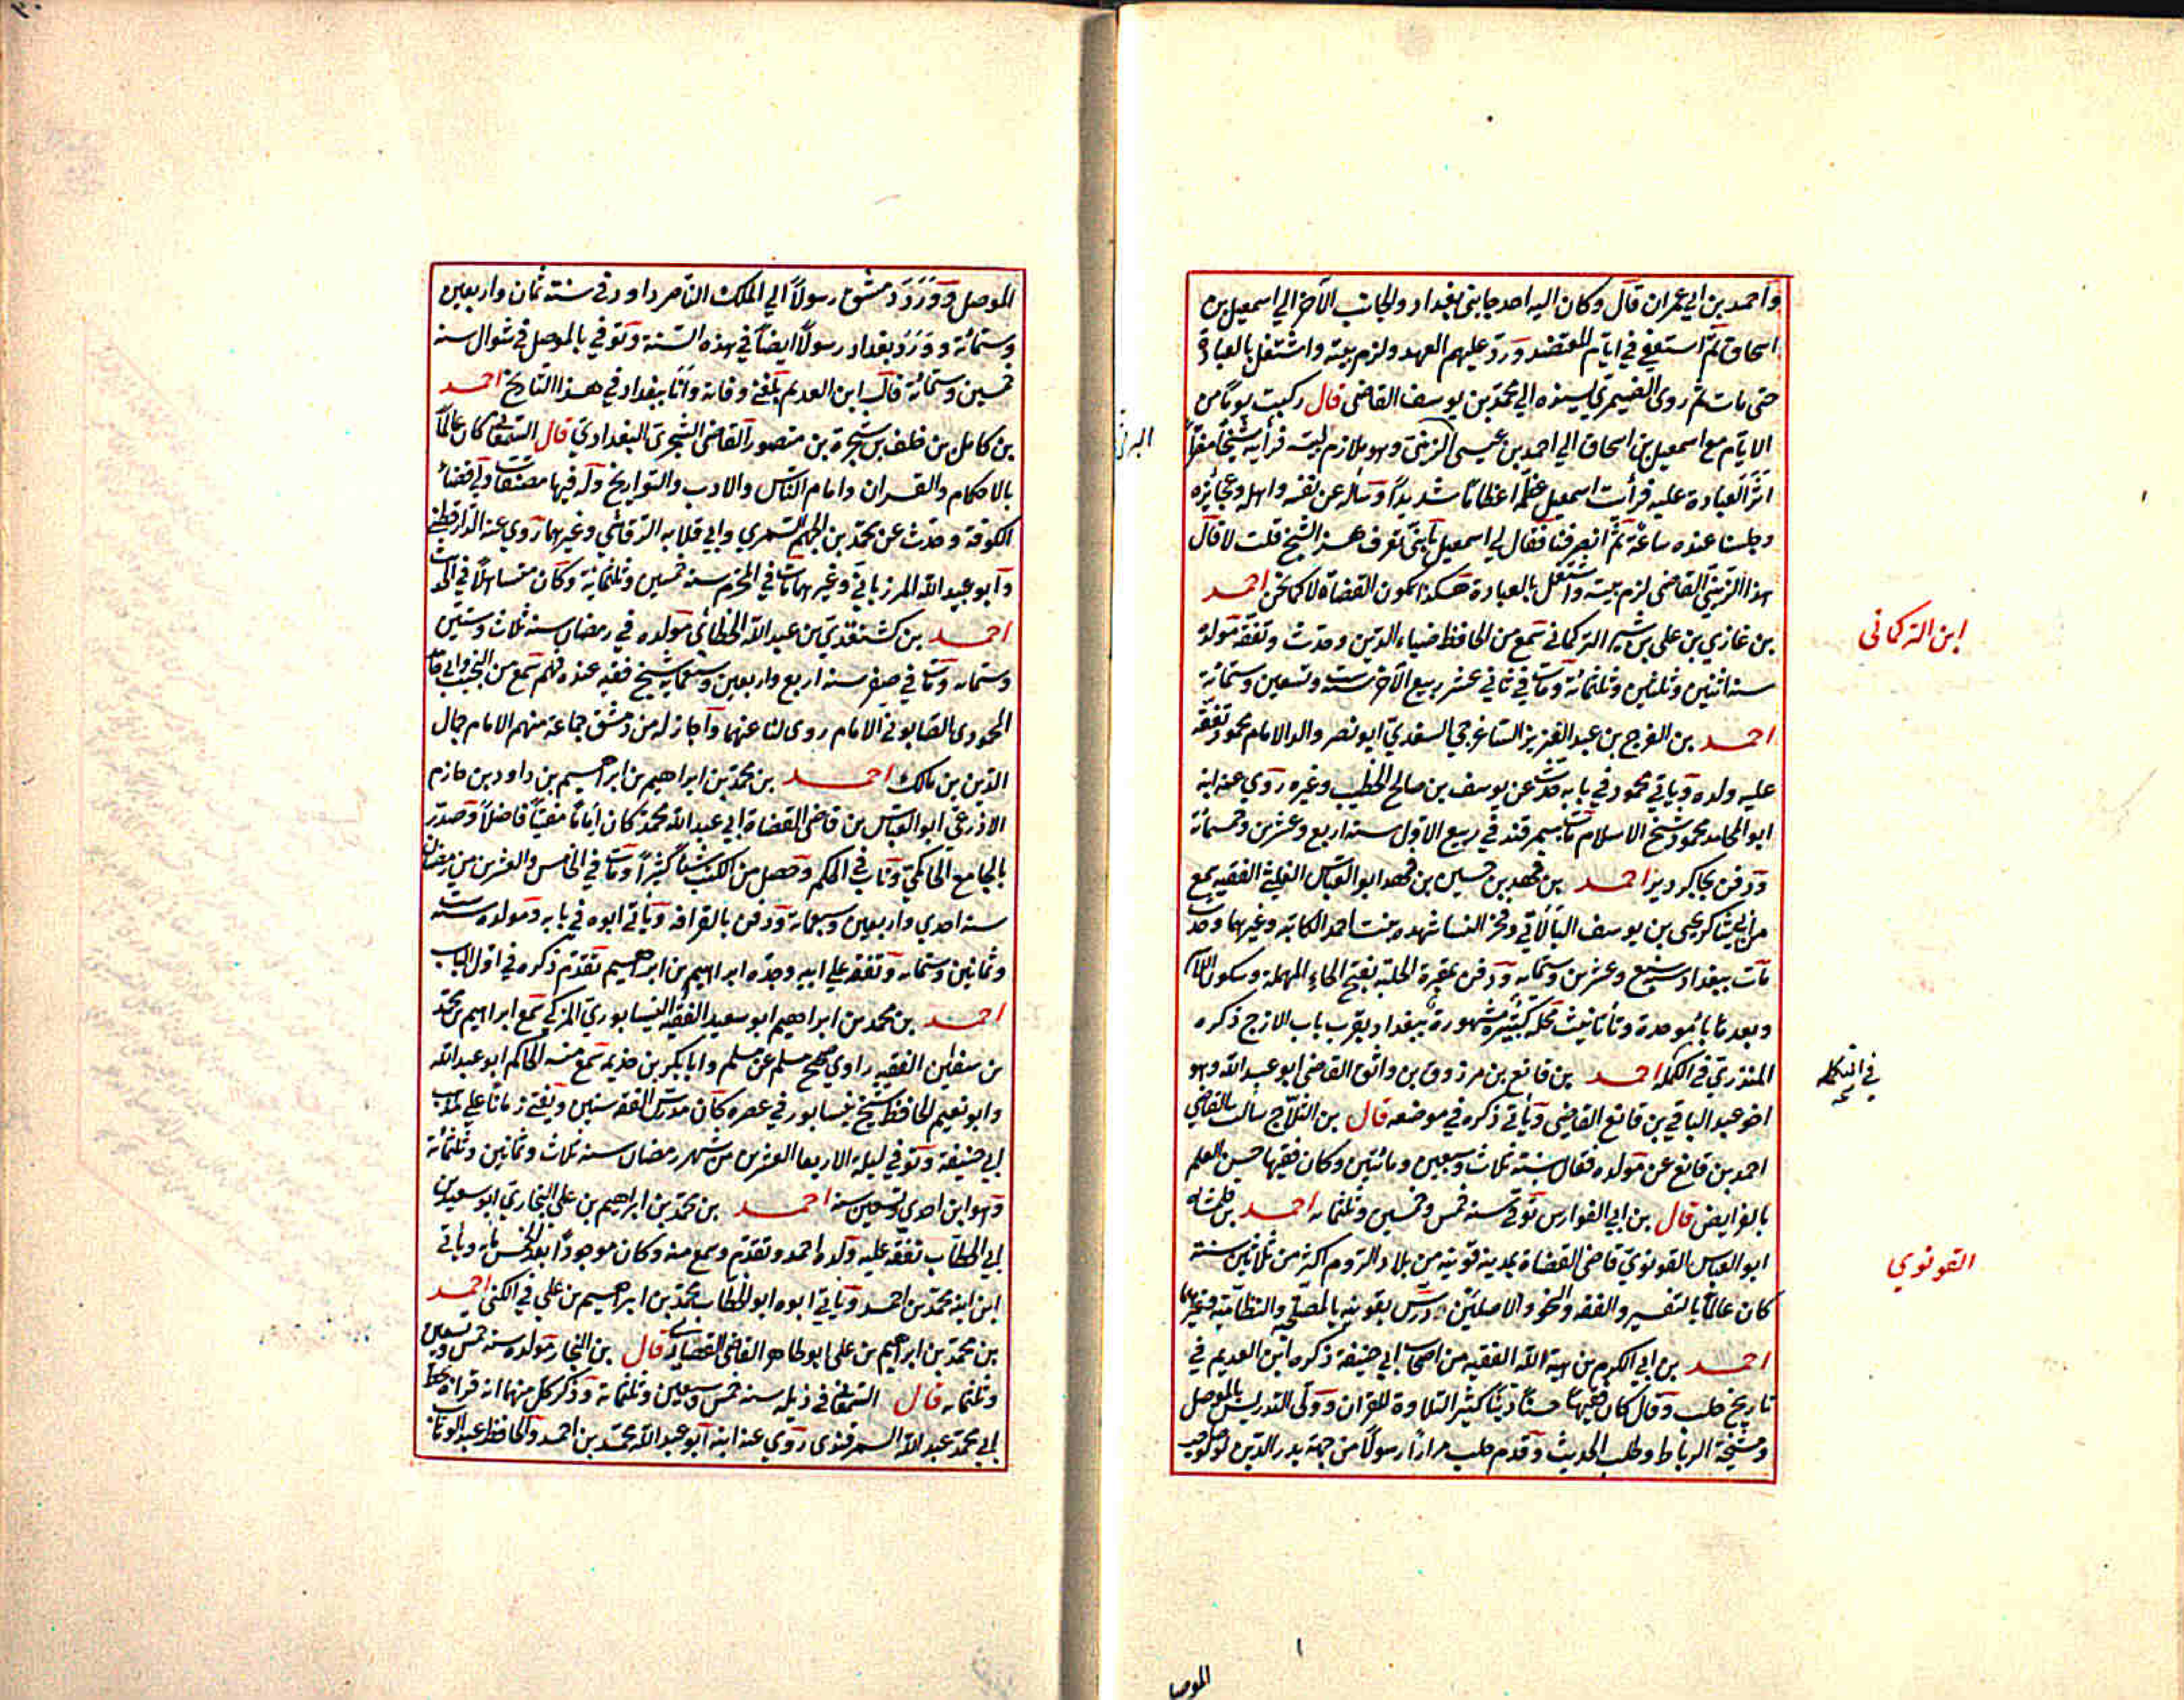 واحمد بن ابي عمران قال وكان اليه احد جانبي بغداد والجانب الآخر الي اسمعيل بن
اسحاق ثم استعفي في ايام المعتضد ورد عليهم العهد ولزم بيته واشتغل بالعبادة
حتى مات ثم روى الصيمري بسنده الي محمد بن يوسف القاضي قال ركبت يوما من
الايام مع اسمعيل بن اسحاق الي احمد بن عيسى البرتي وهو ملازم لبيته فرأيته شيخا مصفرا
اثر العبادة عليه فرأيت اسمعيل عظمه اعظاما شديدا وسأله عن نفسه واهله وعجايزه
وجلسنا عنده ساعة ثم انصرفنا فقال لي اسمعيل يا بني تعرف هذا الشيخ قلت لا قال
هذا البرتي القاضي لزم بيته واشتغل بالعبادة هكذا يكون القضاة لا كما نحن احمد
ابن التركماني
بن غازي بن علي بن شير التركماني سمع من الحافظ ضياء الدين وحدث وتفقه مولده
سنة اثنين وثلثين وثلثمائة ومات في ثاني عشر ربيع الآخر سنة ست وتسعين وستمائة
احمد بن الفرج بن عبد العزيز الساغرجي السغدي ابو نصر والد الامام محمود تفقه
عليه ولده ويأتي محمود في بابه حدث عن يوسف بن صالح الخطيب وغيره روي عنه ابنه
ابو المحامد محمود شيخ الاسلام مات بسمرقند في ربيع الاول سنة اربع وعشرين وخمسمائة
ودفن بجاكرديز احمد بن فهد بن حسين بن فهد ابو العباس الفقيه سمع
من ابي شاكر يحيى بن يوسف البالاني وفخر النسا شهده بنت احمد الكاتبه وغيرهما وحدث
مات ببغداد سنة سبع وعشرين وستمايه ودفن بمقبرة الحلبة بفتح الحاء المهملة وسكون اللام
وبعدها باء موحدة وتا تانيث محلة كبيرة مشهورة ببغداد بقرب باب الازج ذكره
المنذري في الكمله احمد بن قانع بن مرزوق بن واثق القاضي ابو عبد الله وهو
في التكملة
اخو عبد الباقي بن قانع القاضي ويأتي ذكره في موضعه قال بن الثلاج سألت القاضي
احمد بن قانع عن مولده فقال سنة ثلاث وسبعين ومائتين وكان فقيها حسن العلم
بالفرايض قال بن ابي الفوارس توفي سنة خمس وخمسين وثلثمايه احمد بن
القونوي
ابو العباس القونوي قاضي القضاة بمدينة قونيه من بلاد الروم اكثر من ثلاثين سنة
كان عالما بالتفسير والفقه والنحو والاصلين درس بقونيه بالمصلحية والنظامية وغيرهما
احمد بن ابي الكرم بن هبة الله الفقيه من اصحاب ابي حنيفة ذكره ابن العديم في
تاريخ حلب وقال كان فقيها حسنا دينا كثير التلاوة للقران وولى التدريس بالموصل
ومشيخة الرباط وطلب الحديث وقدم حلب مرارا رسولا من جهة بدر الدين لولو صاحب
الموصل
الموصل وورد دمشق رسولا الي الملك الناصر داود في سنة ثمان واربعين
وستمائة وورد بغداد رسولا ايضا في هذه السنة وتوفي بالموصل في شوال سنة
خمسين وستمائة قال ابن العديم بلغني وفاته وانا ببغداد في هذا التاريخ احمد
بن كامل بن خلف بن شجرة بن منصور القاضي الشجري البغدادي قال السمعاني كان عالما
بالاحكام والقران وايام الناس والادب والتواريخ وله فيها مصنفات ولي قضاء
الكوفة وحدث عن محمد بن الجهم السمري وابي قلابه الرقاشي وغيرهما روي عنه الدارقطني
وابو عبيد الله المرزباني وغيرهما مات في المحرم سنة خمسين وثلثمائة وكان متساهلا في الحديث
احمد بن كشتغدي بن عبد الله الخطائي مولده في رمضان سنة ثلاث وستين
وستمايه ومات في صفر سنة اربع واربعين وسبعمايه شيخ فقيه عنده فهم سمع من النجيب وابي حامد
المحمودي الصابوني الامام روى لنا عنهما واجاز له من دمشق جماعة منهم الامام جمال
الدين بن مالك احمد بن محمد بن ابراهيم بن ابراهيم بن داود بن حازم
الاذرعي ابو العباس بن قاضي القضاة ابي عبد الله محمد كان اماما مفتيا فاضلا وصدر
بالجامع الحاكمي وناب في الحكم وحصل من الكتب شيا كثيرا ومات في الخامس والعشرين من رمضان
سنة احدي واربعين وسبعمايه ودفن بالقرافه ويأتي ابوه في بابه ومولده سنة ست
وثمانين وستمايه وتفقه على ابيه وجده ابراهيم بن ابراهيم تقدم ذكره في اول الباب
احمد بن محمد بن ابراهيم ابو سعيد الفقيه النيسابوري المزكي سمع ابراهيم بن محمد
بن سفين الفقيه راوي صحيح مسلم عن مسلم وابا بكر بن خزيمه سمع منه الحاكم ابو عبد الله
وابو نعيم الحافظ شيخ نيسابور في عصره كان مدرس الفقه سنين ويفتي زمانا علي مذهب
ابي حنيفة وتوفي ليلة الاربعا العشرين من شهر رمضان سنة ثلاث وثمانين وثلثمائة
وهو ابن احدي وتسعين سنة احمد بن محمد بن ابراهيم بن علي البخاري ابو سعيد بن
ابي الخطاب تفقه عليه ولده احمد وتقدم وسمع منه وكان موجودا بعد الخمس مايه وياتي
ابن ابنه محمد بن احمد وياتي ابوه ابو الخطاب محمد بن ابراهيم بن علي في الكنى احمد
بن محمد بن ابراهيم بن علي ابو طاهر القاضي القصاري قال بن النجار مولده سنة خمس وتسعين
وثلثمايه قال السمعاني في ذيله سنة خمس وسبعين وثلثمائة وذكر كل منهما انه قراه بخط
ابي محمد عبد الله السمرقندي روي عنه ابنه ابو عبد الله محمد بن احمد والحافظ عبد الوهاب